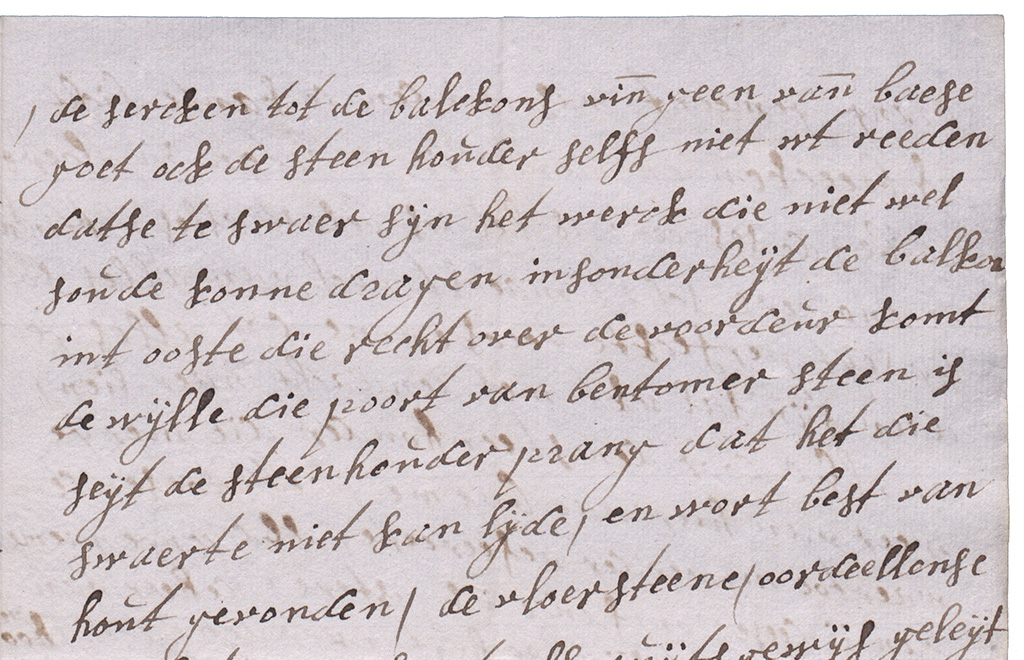 / de sercken tot de balckons vin geen van baese
goet ock de steen houder selfs niet wt reeden
datse te swaer sijn het werck die niet wel
soude konne dragen insonderheijt de balkon
int ooste die recht over de voordeur komt
de wijlle die poort van bentomer steen is
seijt de steenhouder prang dat het die
swaerte niet kan lijde, en wort best van
hout gevonden / de vloersteene / oordeellense
geleijt